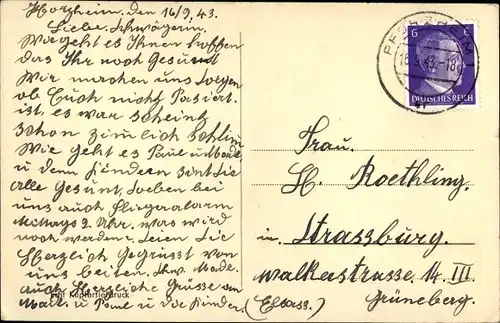 Pforzheim. den 16/9. 43.
Liebe Schwägerin.
Wie geht es Ihnen hoffen
das Ihr noch Gesunt
Wir machen uns Sorgen
ob Euch nicht Pasiert.
ist, es war scheint
schon zimlich schlim
Wie geht es Paul u Made
u denn Kindern sint Sie
alle Gesunt, Soeben bei
uns auch Fliegeraalarm
Mittags 2 Uhr, was wird
noch werden. Seien Sie
Herzlich Gegrüsst von
uns beiten. Made.
auch Herzliche Grüsse an
u Paul u die Kinder,
Kupfertiefdruck
PFORZHEIM
6 6
DEUTSCHES REICH
Frau.
H. Roethling.
in. Strassburg.
Walkerstrasse. 14. III
(Elsass.) Grüneberg.